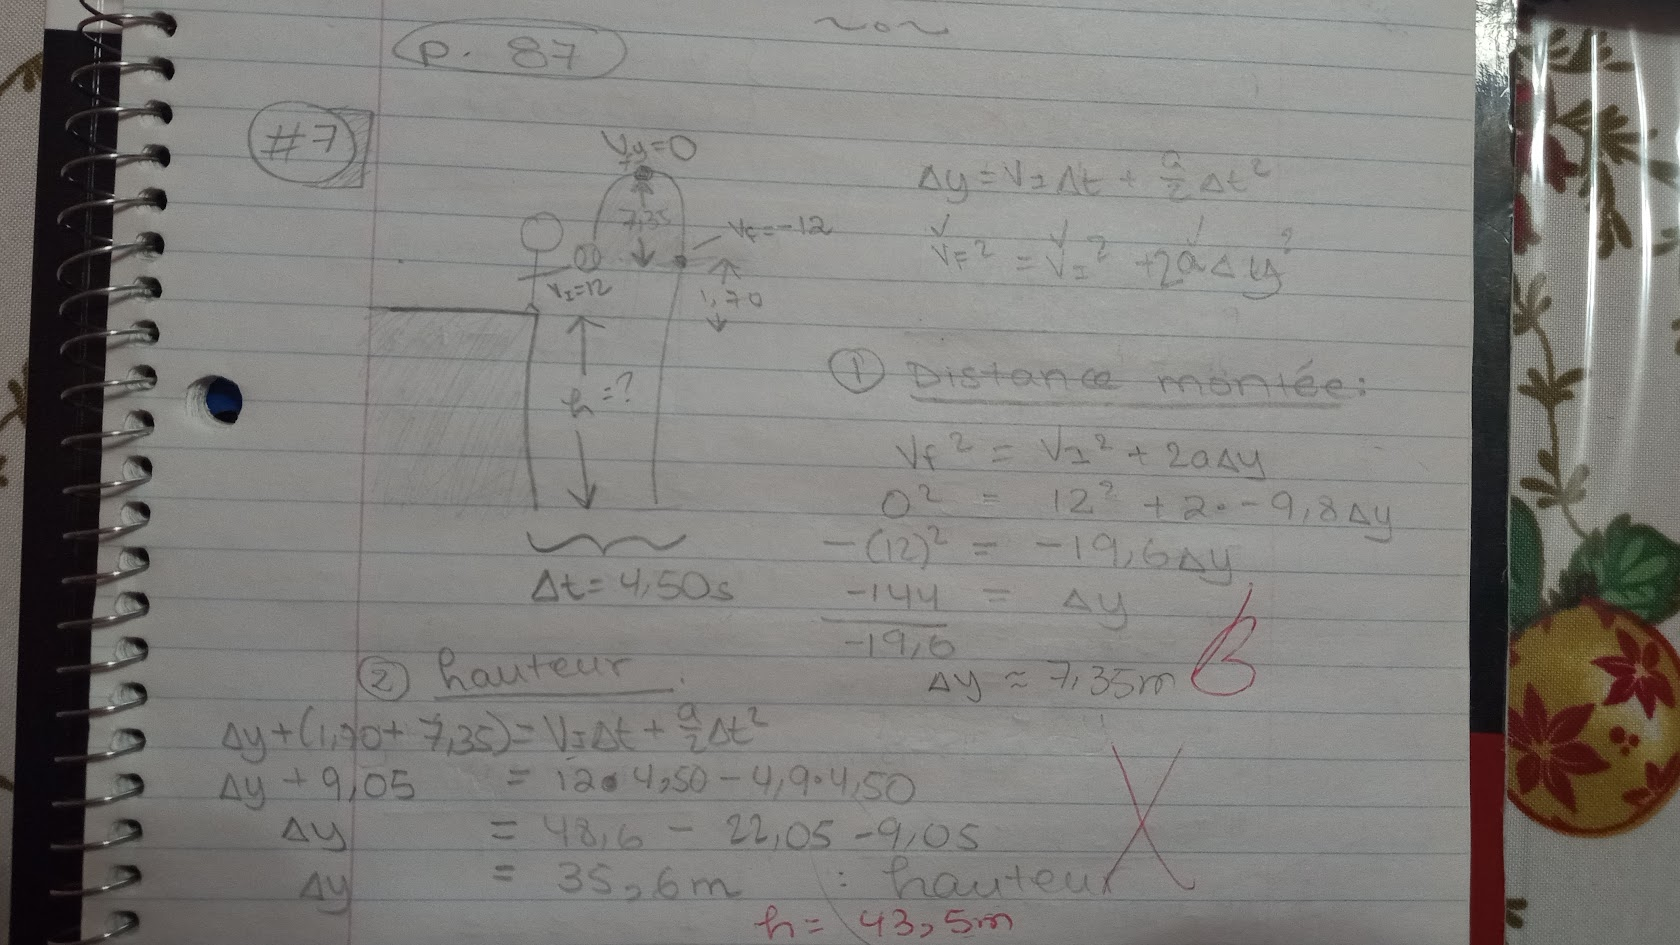 p. 87
#7
Vy=0
7,35
Vf=-12
VI=12
1,70
h=?
Δt=4,50s
Δy=VIΔt + a/2 Δt²
VF² = VI² +2aΔy?
① Distance montée:
Vf² = VI² + 2aΔy
0² = 12² + 2·-9,8Δy
-(12)² = -19,6Δy
-144/-19,6 = Δy
Δy ≈ 7,35m B
② hauteur.
Δy+(1,70+7,35)=VIΔt+a/2Δt²
Δy + 9,05 = 12·4,50-4,9·4,50
Δy = 48,6 - 22,05 -9,05
Δy = 35,6m : hauteur
h= 43,5m